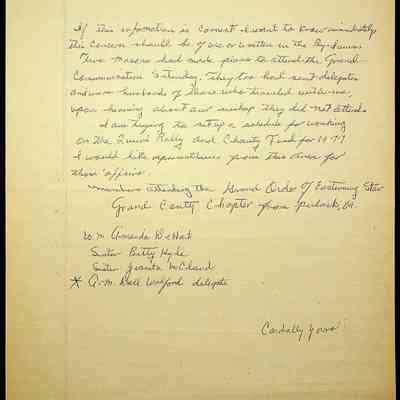 If this information is correct I want to know immediately
this concern should be given or written in the By-Laws
Two Masons had made plans to attend the Grand
Communication Saturday. They too had sent delegates
and were husbands of those who traveled with me,
upon hearing about our mishap they did not attend.
I am trying to set up a schedule for working
on the Queens Rally and Charity Fund for 1979
I would like representatives from this area for
these affairs.
members attending the Grand Order of Eastern Star
Grand County Chapter from
W. M. Amanda DeHart
Sister Betty Hyde
Sister Juanita McCloud
* A.M. Dell delegate
Cordially Yours